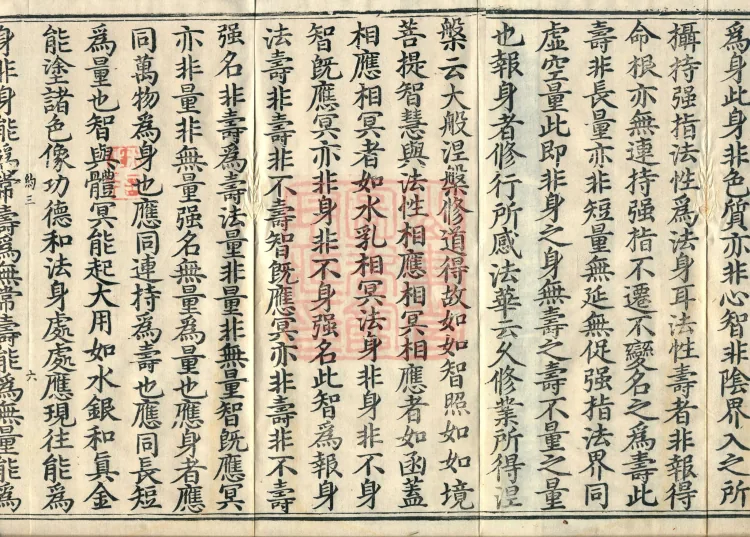 為身此身非色質亦非心智非陰界入之所
攝持强指法性為法身耳法性壽者非報得
命根亦無連持强指不遷不變名之為壽此
壽非長量亦非短量無延無促强指法界同
虛空量此即非身之身無壽之壽不量之量
也報身者修行所感法華云久修業所得涅
槃云大般涅槃修道得故如如智照如如境
菩提智慧與法性相應相冥相應者如函蓋
相應相冥者如水乳相冥法身非身非不身
智旣應冥亦非身非不身强名此智為報身
法壽非壽非不壽智旣應冥亦非壽非不壽
强名非壽為壽法量非量非無量智旣應冥
亦非量非無量强名無量為量也應身者應
同萬物為身也應同連持為壽也應同長短
為量也智與體冥能起大用如水銀和眞金
能塗諸色像功德和法身處處應現往能為
身非身能為常壽為無常壽能為無量能為
六